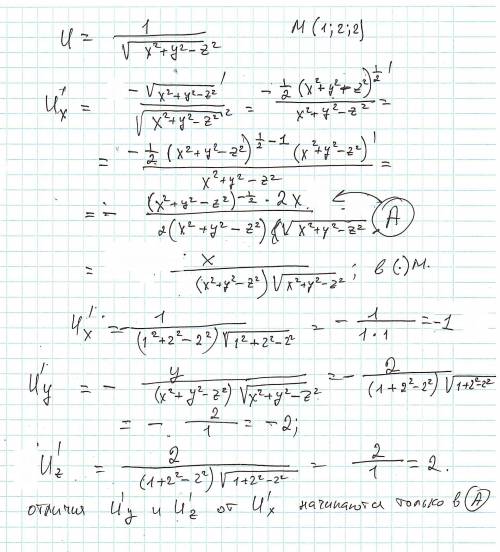 U = 1/√(x²+y²−z²)   M(1;2;2)
U'ₓ = −√(x²+y²−z²)' / √(x²+y²−z²)² = −½(x²+y²−z²)^½' / x²+y²−z² =
= −½(x²+y²−z²)^(½−1) (x²+y²−z²)' / x²+y²−z² =
= − (x²+y²−z²)^(−½) · 2x / 2(x²+y²−z²) √(x²+y²−z²)   A
= x / (x²+y²−z²)√(x²+y²−z²) ; в (·) M.
U'ₓ = − 1/(1²+2²−2²)√(1²+2²−2²) = − 1/(1·1) = −1
U'y = − y/(x²+y²−z²)√(x²+y²−z²) = − 2/(1+2²−2²)√(1+2²−2²)
= − 2/1 = −2;
U'z = 2/(1+2²−2²)√(1+2²−2²) = 2/1 = 2.
отличия U'y и U'z от U'x начинаются только в A